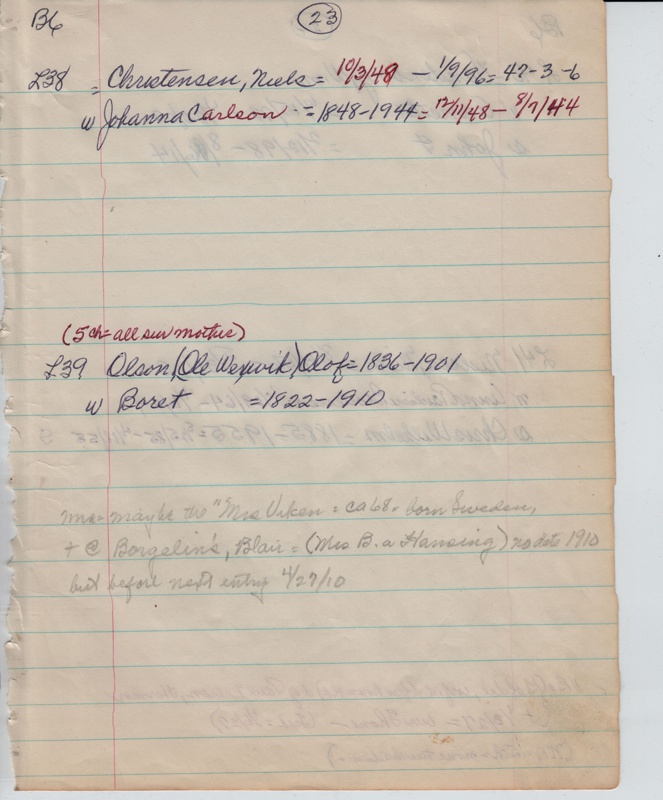 B6
23
L38 = Christensen, Niels = 10/3/48 - 1/9/96 = 47-3-6
w Johanna Carlson = 1848-1944 = 12/11/48 - 8/7/44
(5 ch = all sur mother)
L39 Olson (Ole Wexvik) Olof = 1836-1901
w Boret = 1822-1910
maybe the "Mrs Viken = ca 68 - born Sweden,
+ @ Borgelin's, Blair = (Mrs B. a Hansing) no date 1910
but before next entry 4/27/10